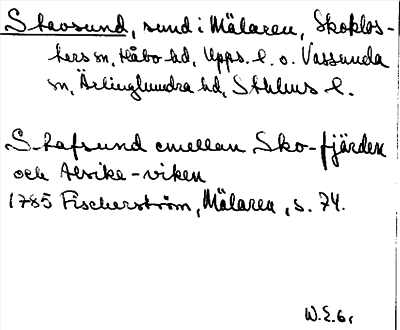 Stavsund, sund i Mälaren, Skoklos-
ters sn, Håbo hd, Upps. l. o. Vassunda
sn, Ärlinghundra hd, Sthlms l.
Stafsund emellan Sko-fjärden
och Alsike-viken
1785 Fischerström, Mälaren, s. 74.
W.E. 61